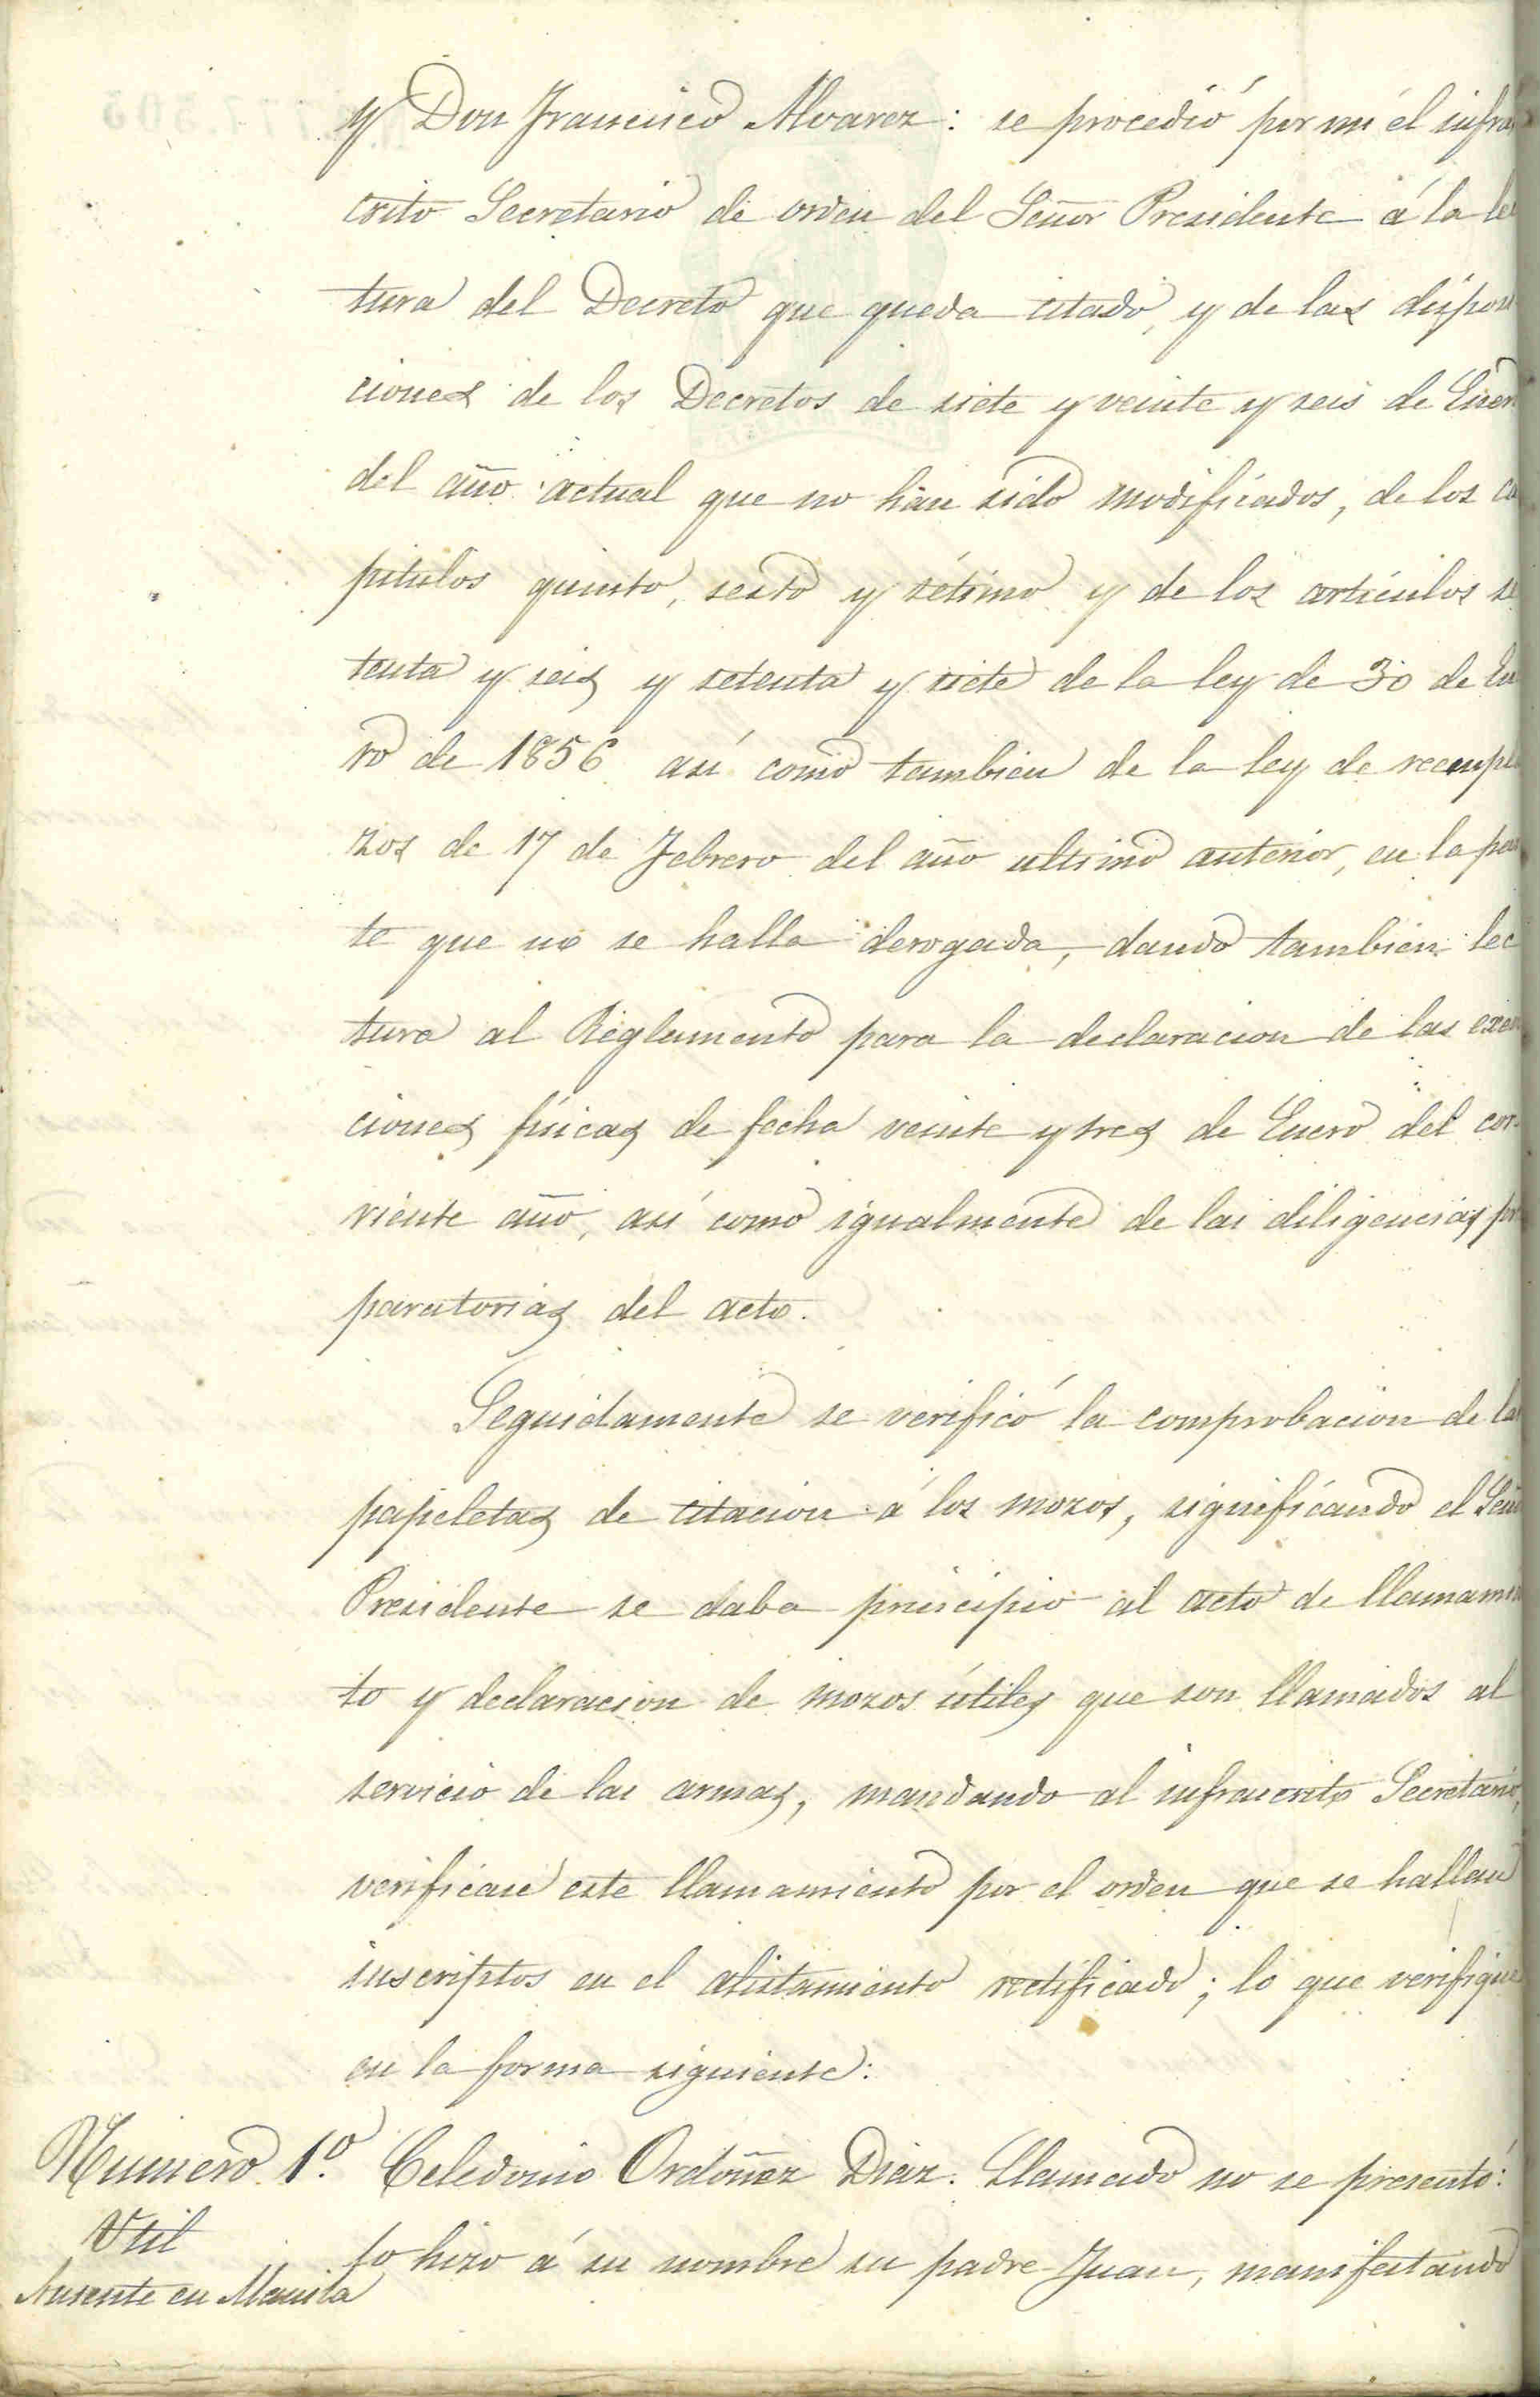 y Don Francisco Alvarez: se procedió por mi el infras
crito Secretario de orden del Señor Presidente á la lec
tura del Decreto que queda citado, y de las disposi
ciones de los Decretos de siete y veinte y seis de Enero
del año actual que no han sido modificados, de los ca
pitulos quinto, sesto y sétimo y de los artículos se
tenta y seis y setenta y siete de la ley de 30 de Ene
ro de 1856 así como tambien de la ley de reempla
zos de 17 de Febrero del año ultimo anterior, en la par
te que no se halla derogada, dando tambien lec
tura al Reglamento para la declaracion de las exen
ciones físicas de fecha veinte y tres de Enero del cor-
riente año, así como igualmente de las diligencias pre
paratorias del acto.
Seguidamente se verificó la comprobacion de las
papeletas de citacion á los mozos, significando el Señor
Presidente se daba principio al acto de llamamien
to y declaracion de mozos útiles que son llamados al
servicio de las armas, mandando al infrascrito Secretario,
verificase este llamamiento por el orden que se hallan
inscriptos en el alistamiento rectificado; lo que verifique
en la forma siguiente:
Numero 1º. Celedonio Ordoñez Diaz. Llamado no se presentó:
Util
lo hizo á su nombre su padre Juan, manifestando
Ausente en Manila